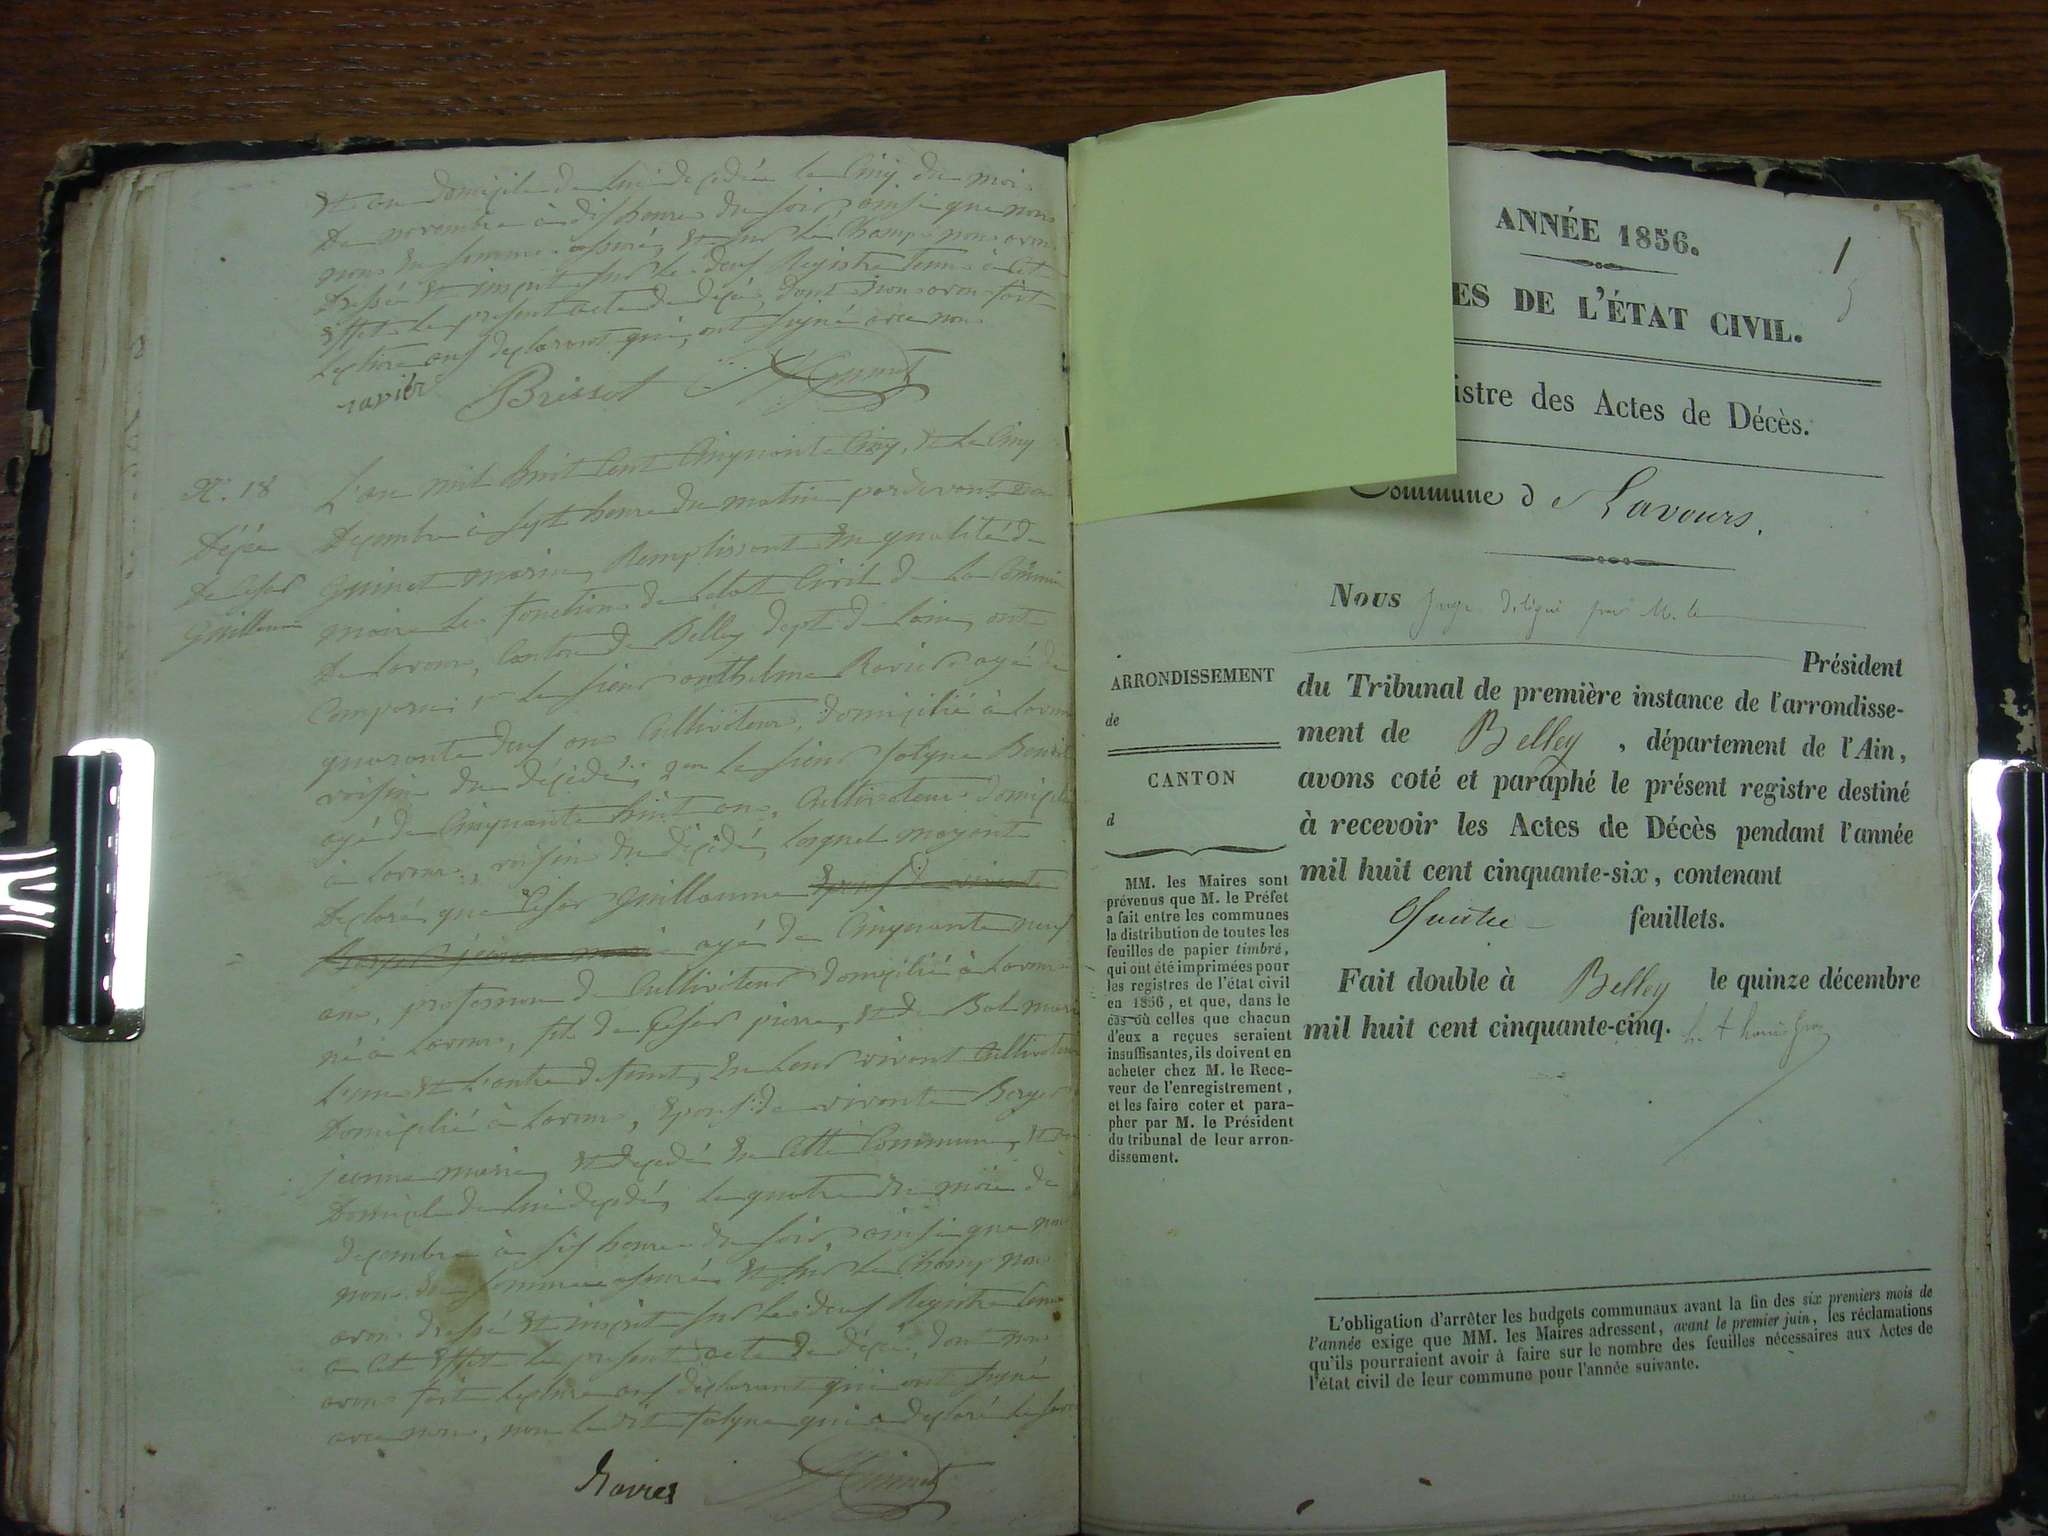 et au domicile de lui decédée le Cinq du mois
De novembre à dix heures du soir, ainsi que nous
nous en sommes assuré, et sur le Champ nous avons
Dressé et inscrit sur les deux Registre tenus à cet
effet le present acte de décés, dont nous avons fait
lecture aux declarant qui ont signé avec nous
ravier Brissot Guinet
N°. 18
Décée
De Cesar
Guillaume
L'an mil huit Cent Cinquante Cinq, et le Cinq
Decembre à sept heure du matin pardevant
Guinet marin, Remplissant en qualité de
maire les fonctions de l'etat Civil de la Commune
De lavour, Canton de Belley dept de l'ain, ont
Comparus 1° le sieur anthelme Ravier agé de
quarante deux ans Cultivateur, domicilié à lavour
voisin du décédé, 2em le sieur
agé de Cinquante huit ans, Cultivateur domicilié
à lavour, voisin du décédé, lesquel m'ayant
Declaré que Cesar Guillaume epoux de vivante
Berger jeanne marie agé de Cinquante neuf
ans, profession de Cultivateur domicilié à lavour
né à lavour, fils de Cesar pierre, et de marie
l'un et l'autre defunt, en leur vivant Cultivateur
Domicilié à lavour, epoux de vivante Berger
jeanne marie, et decedé en Cette Commune, et au
Domicile de lui decedé, le quatre du mois de
decembre à six heure du soir, ainsi que nous
nous en sommes assuré et sur le Champ nous
avons dressé et inscrit sur les deux Registre tenu
a cet effet le present acte de décé, dont nous
avons fait lecture aux déclarant qui ont signé
avec nous, non le dit qui a declaré ne savoir
Ravier Guinet
ANNÉE 1856.
1
ES DE L'ÉTAT CIVIL.
istre des Actes de Décès.
Commune de Lavours.
Nous juge délégué par M. le
Président
du Tribunal de première instance de l'arrondisse-
ment de Belley, département de l'Ain,
avons coté et paraphé le présent registre destiné
à recevoir les Actes de Décès pendant l'année
mil huit cent cinquante-six, contenant
Quatre feuillets.
Fait double à Belley le quinze décembre
mil huit cent cinquante-cinq.
ARRONDISSEMENT
de
CANTON
d
MM. les Maires sont
prévenus que M. le Préfet
a fait entre les communes
la distribution de toutes les
feuilles de papier timbré,
qui ont été imprimées pour
les registres de l'état civil
en 1856, et que, dans le
cas où celles que chacun
d'eux a reçues seraient
insuffisantes, ils doivent en
acheter chez M. le Rece-
veur de l'enregistrement,
et les faire coter et para-
pher par M. le Président
du tribunal de leur arron-
dissement.
L'obligation d'arrêter les budgets communaux avant la fin des six premiers mois de
l'année exige que MM. les Maires adressent, avant le premier juin, les réclamations
qu'ils pourraient avoir à faire sur le nombre des feuilles nécessaires aux Actes de
l'état civil de leur commune pour l'année suivante.